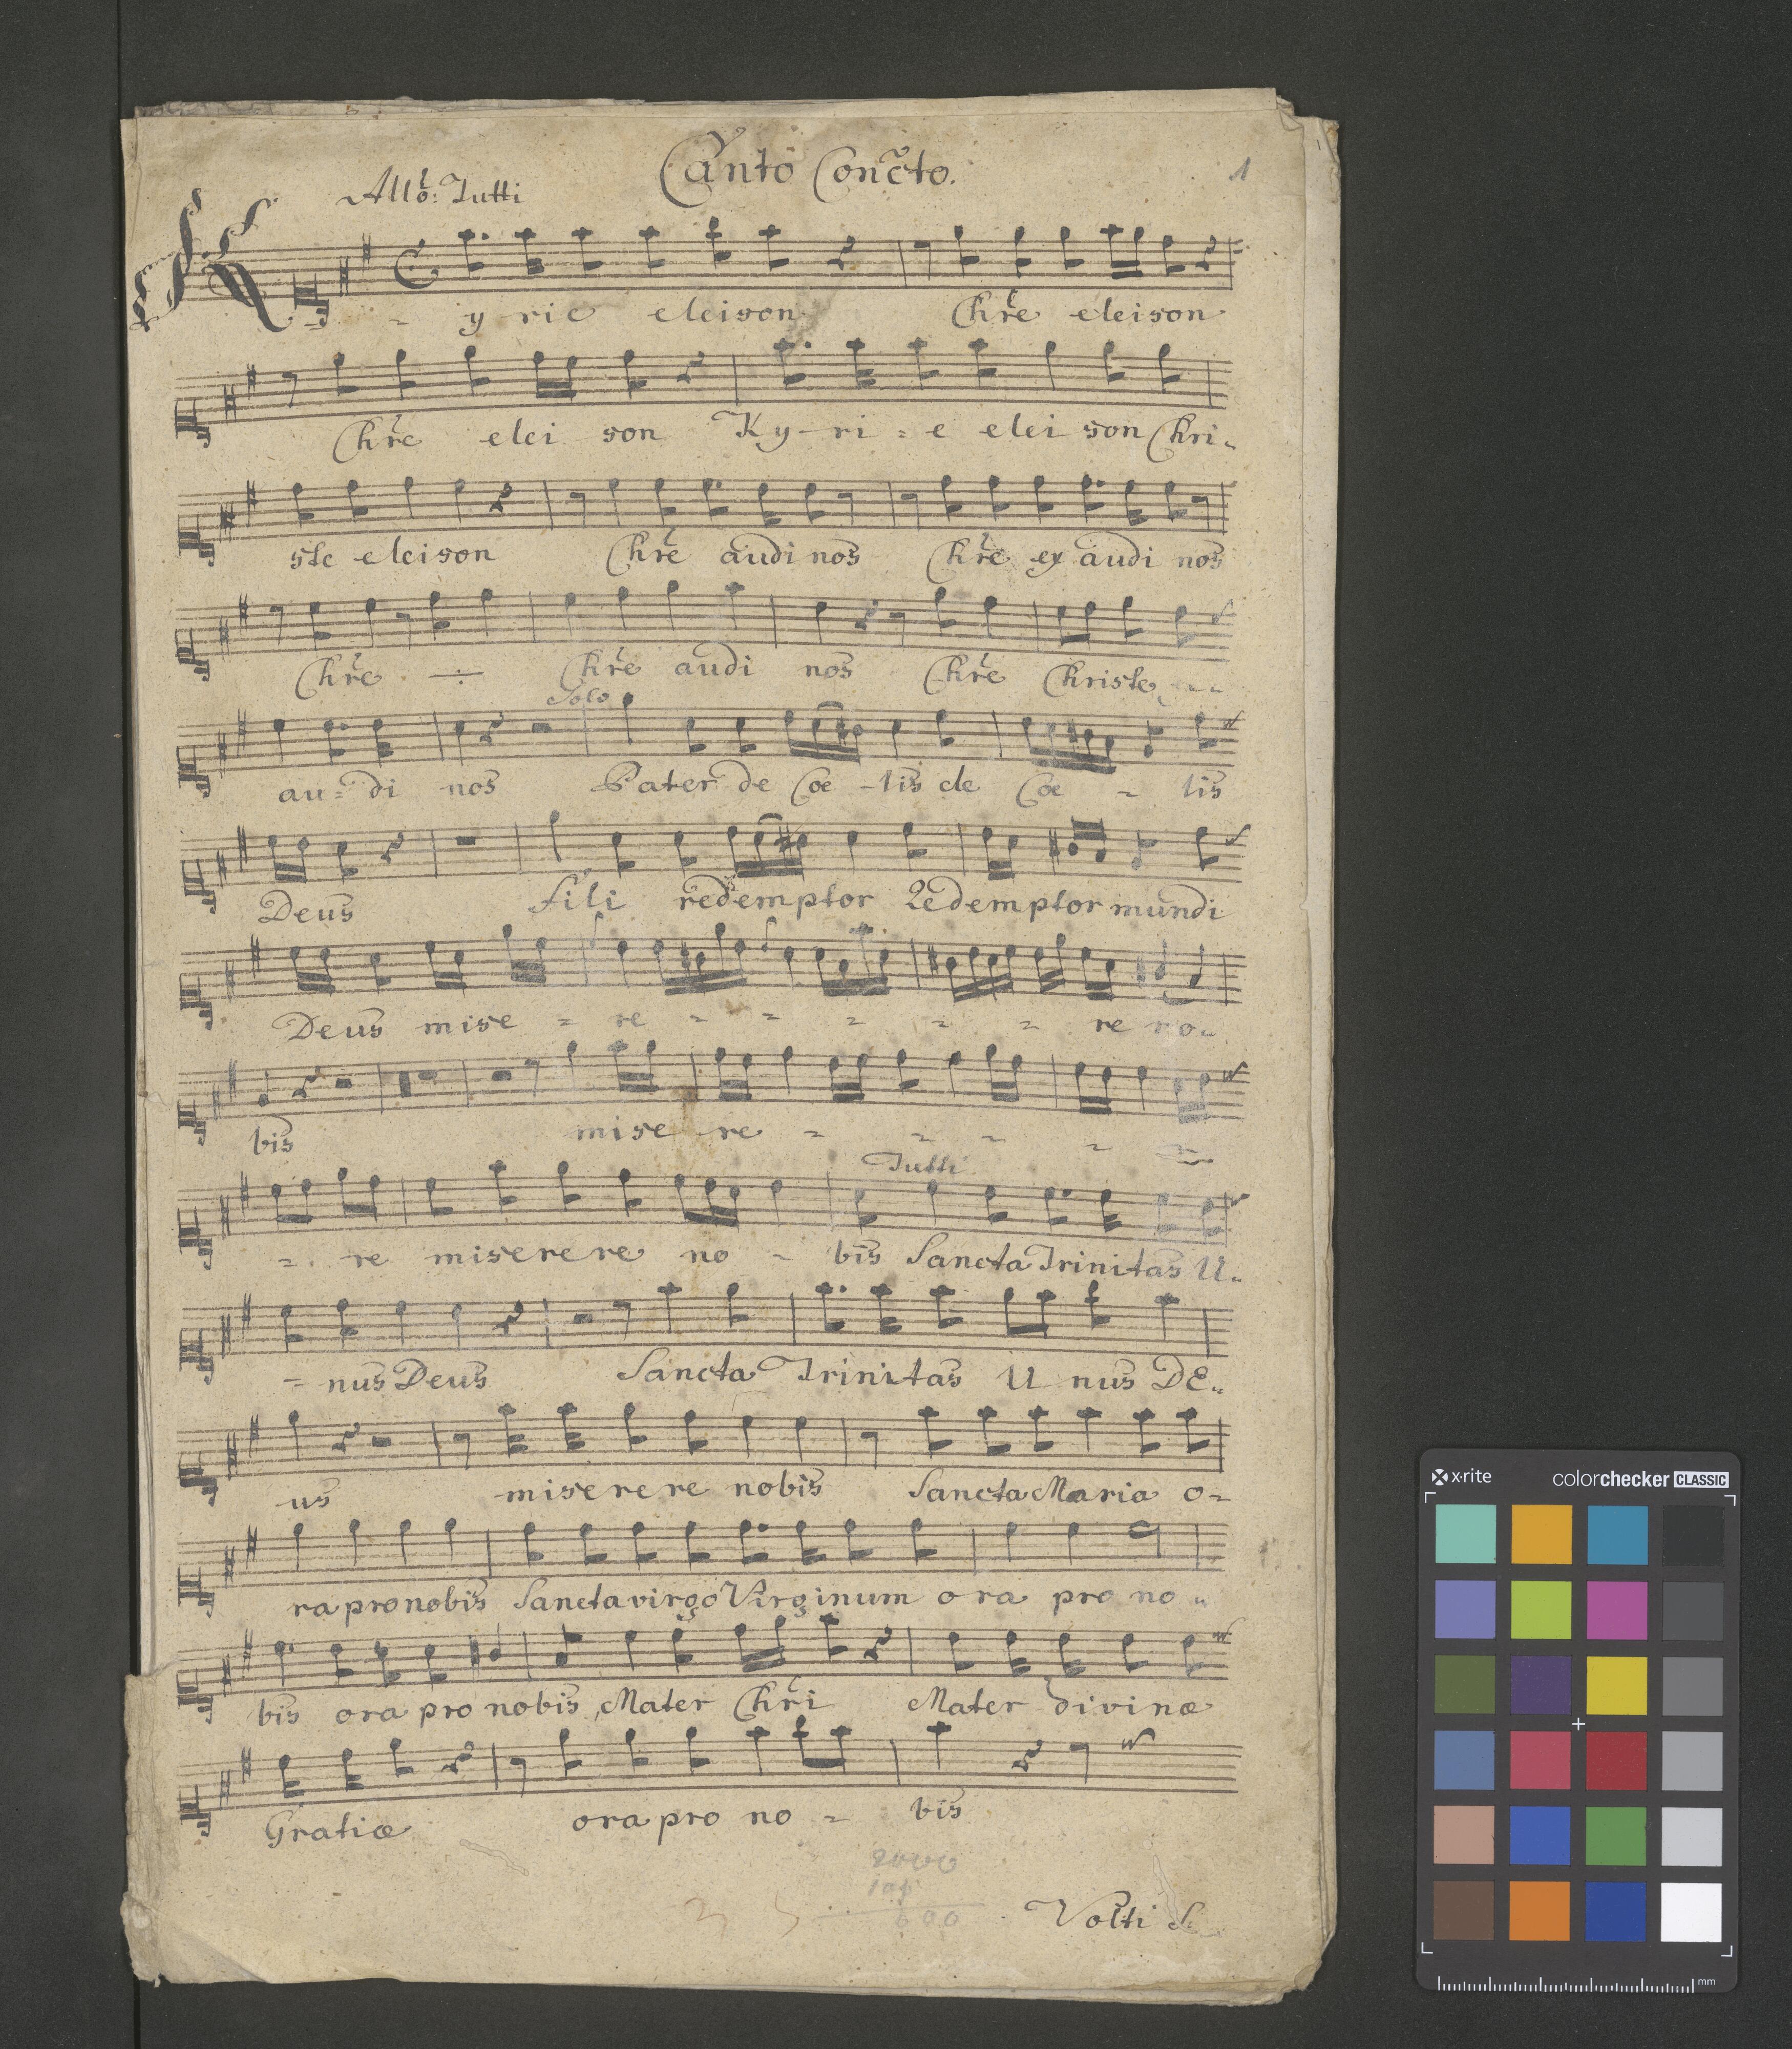 Canto Conc̃to.
1
Allo: Tutti
Kyrie eleison Chre eleison
Chre elei son Ky-ri=e elei son Chri-
ste eleison Chre audi nos Chre ex audi nos
Chre ÷ Chre audi nos Chre Christe
Solo
au=di nos Pater de Coe-lis de Coe - lis
Deus fili redemptor Redemptor mundi
Deus mise = re - - - - - re no-
bis mise re - - - - -
Tutti
=. re miserere no - bis Sancta Trinitas U-
= nus Deus Sancta Trinitas U nus DE-
us miserere nobis Sancta Maria o-
ra pro nobis Sancta virgo Virginum o ra pro no -
bis ora pro nobis, Mater Chri Mater divinæ
Gratiæ ora pro no = bis
Volti S.
x-rite colorchecker CLASSIC
mm